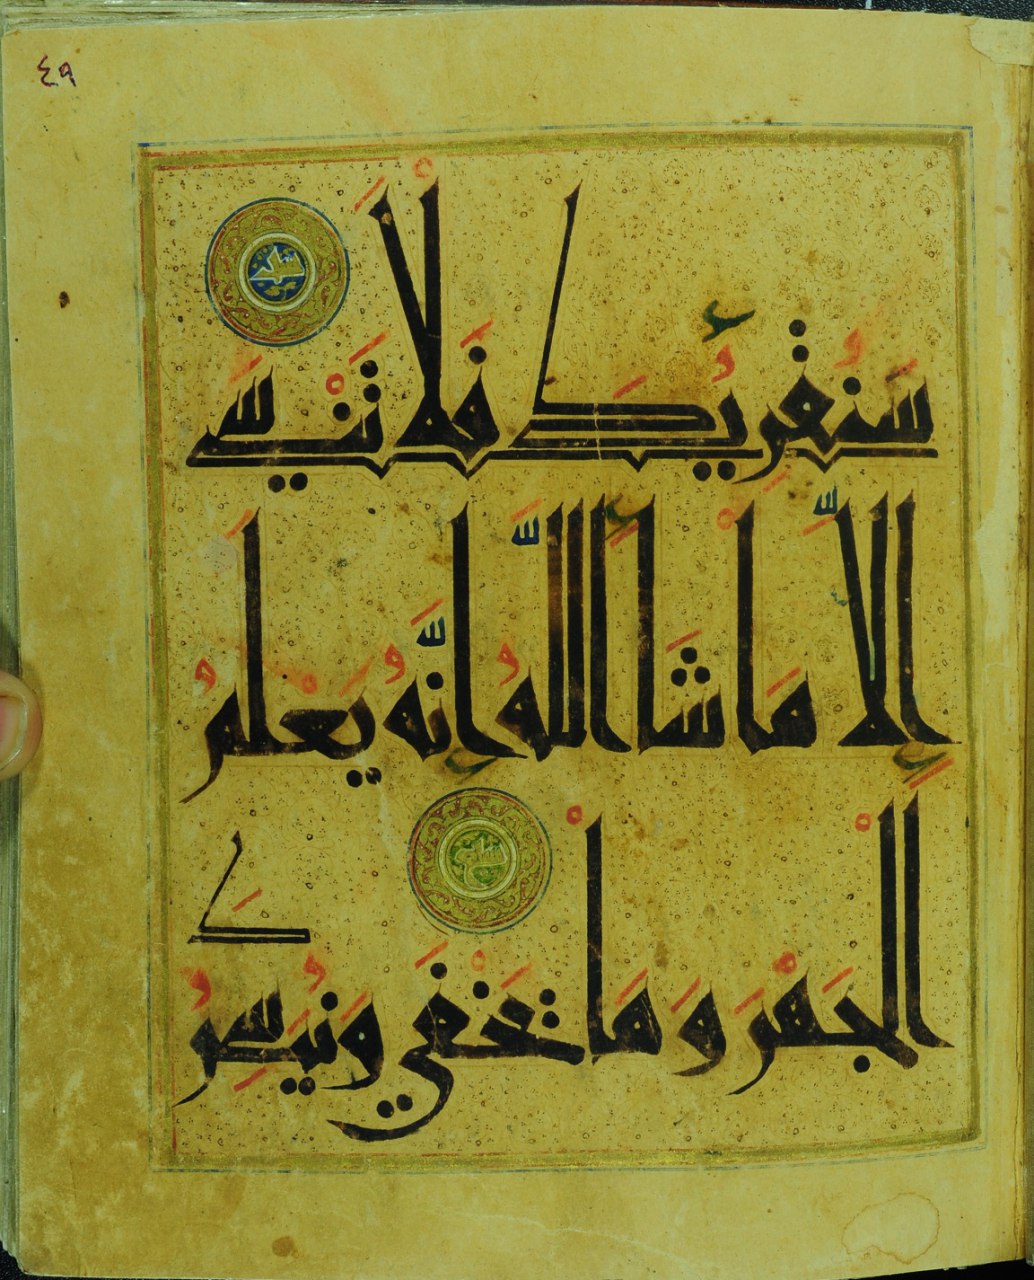 ٤٩
سَنُقْرِئُكَ فَلَا تَنْسَى
إِلَّا مَا شَاءَ اللَّهُ إِنَّهُ يَعْلَمُ
الْجَهْرَ وَمَا يَخْفَى وَنُيَسِّرُكَ